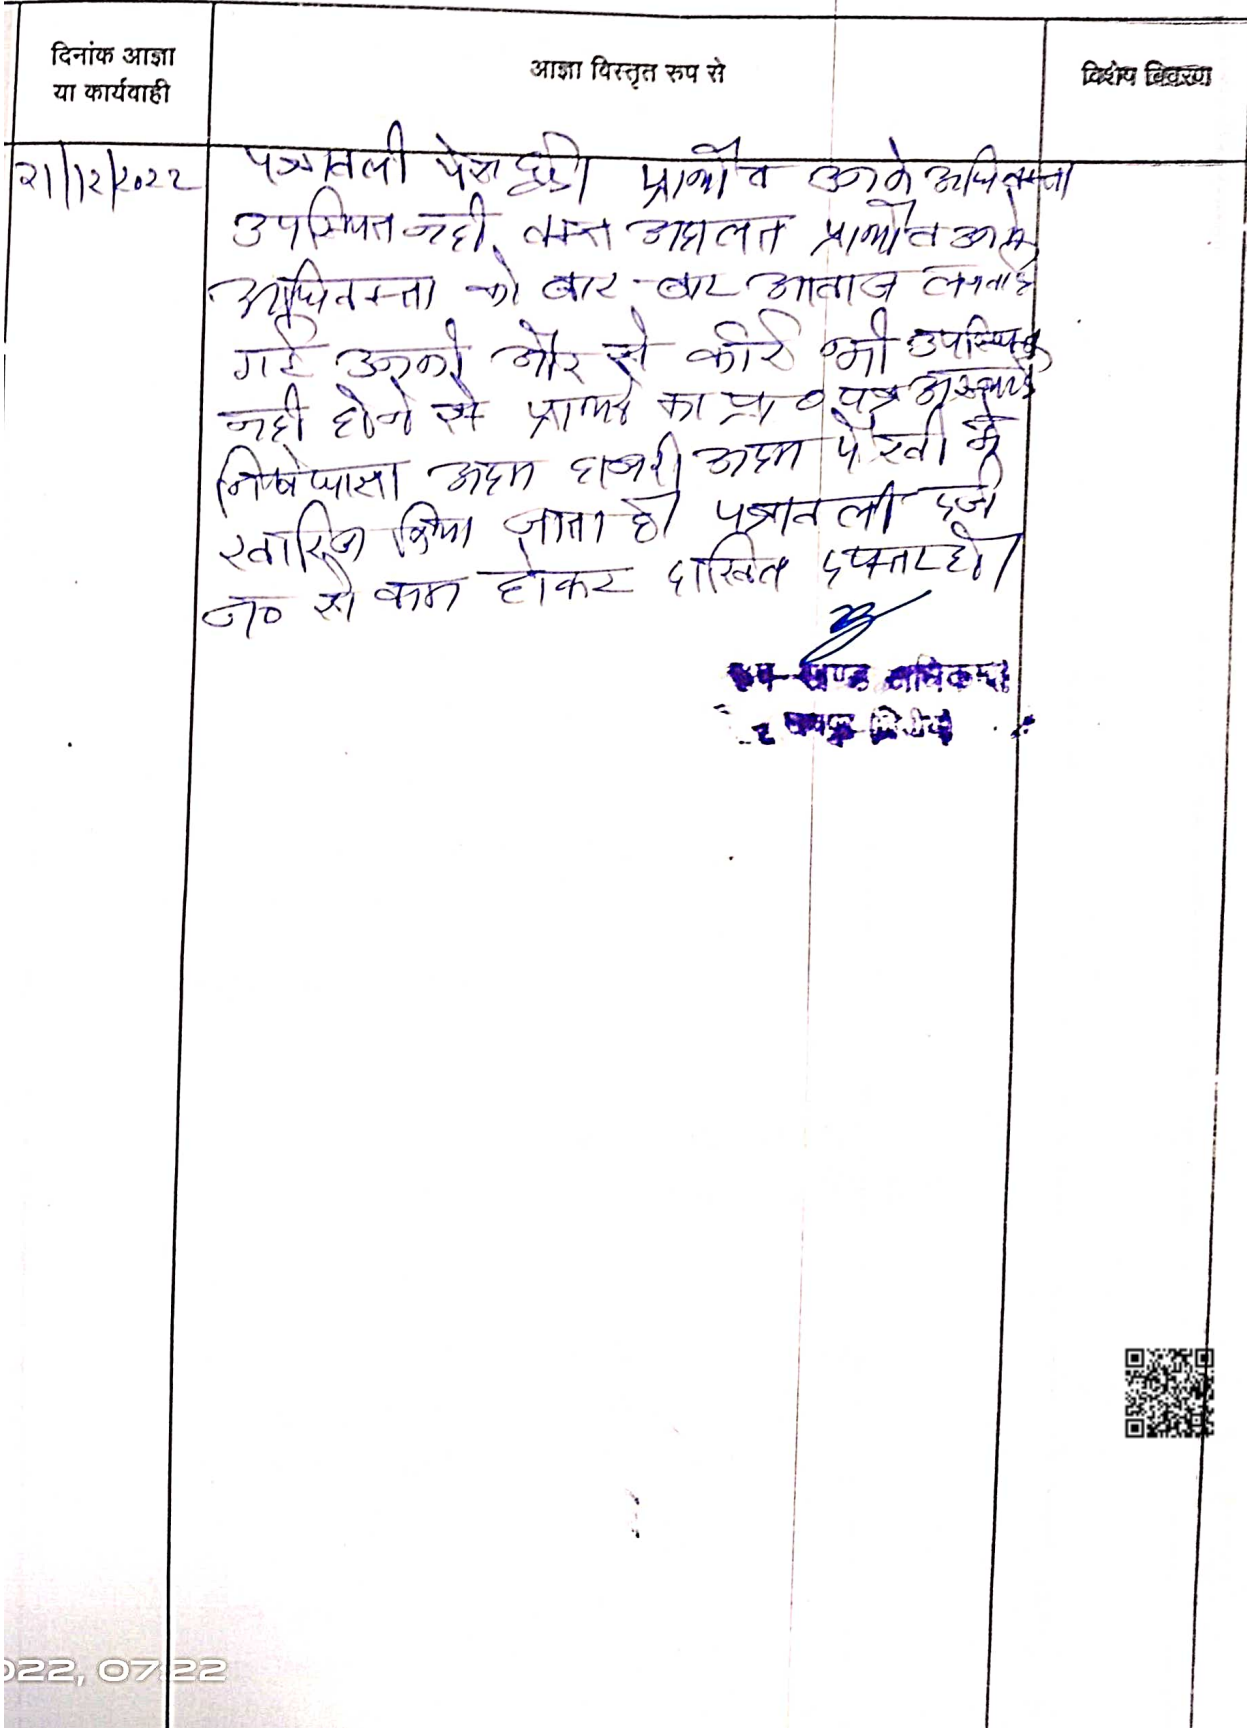 दिनांक आज्ञा
या कार्यवाही
आज्ञा विस्तृत रूप से
विशेष विवरण
21/12/2022
पत्रावली पेश हुई। प्रार्थी व उनके अधिवक्ता
उपस्थित नहीं, वक्त अदालत प्रार्थी व उनके
अधिवक्ता को बार-बार आवाज लगवाई
गई उनकी और से कोई भी उपस्थित
नही होने से प्रार्थी का प्रा० पत्र अस्थाई
निषेधाज्ञा अदम हाजरी अदम पैरवी में
खारिज किया जाता है। पत्रावली दर्ज
न० से कम होकर दाखिल दफ्तर हो।
उप खण्ड अधिकारी
022, 07:22